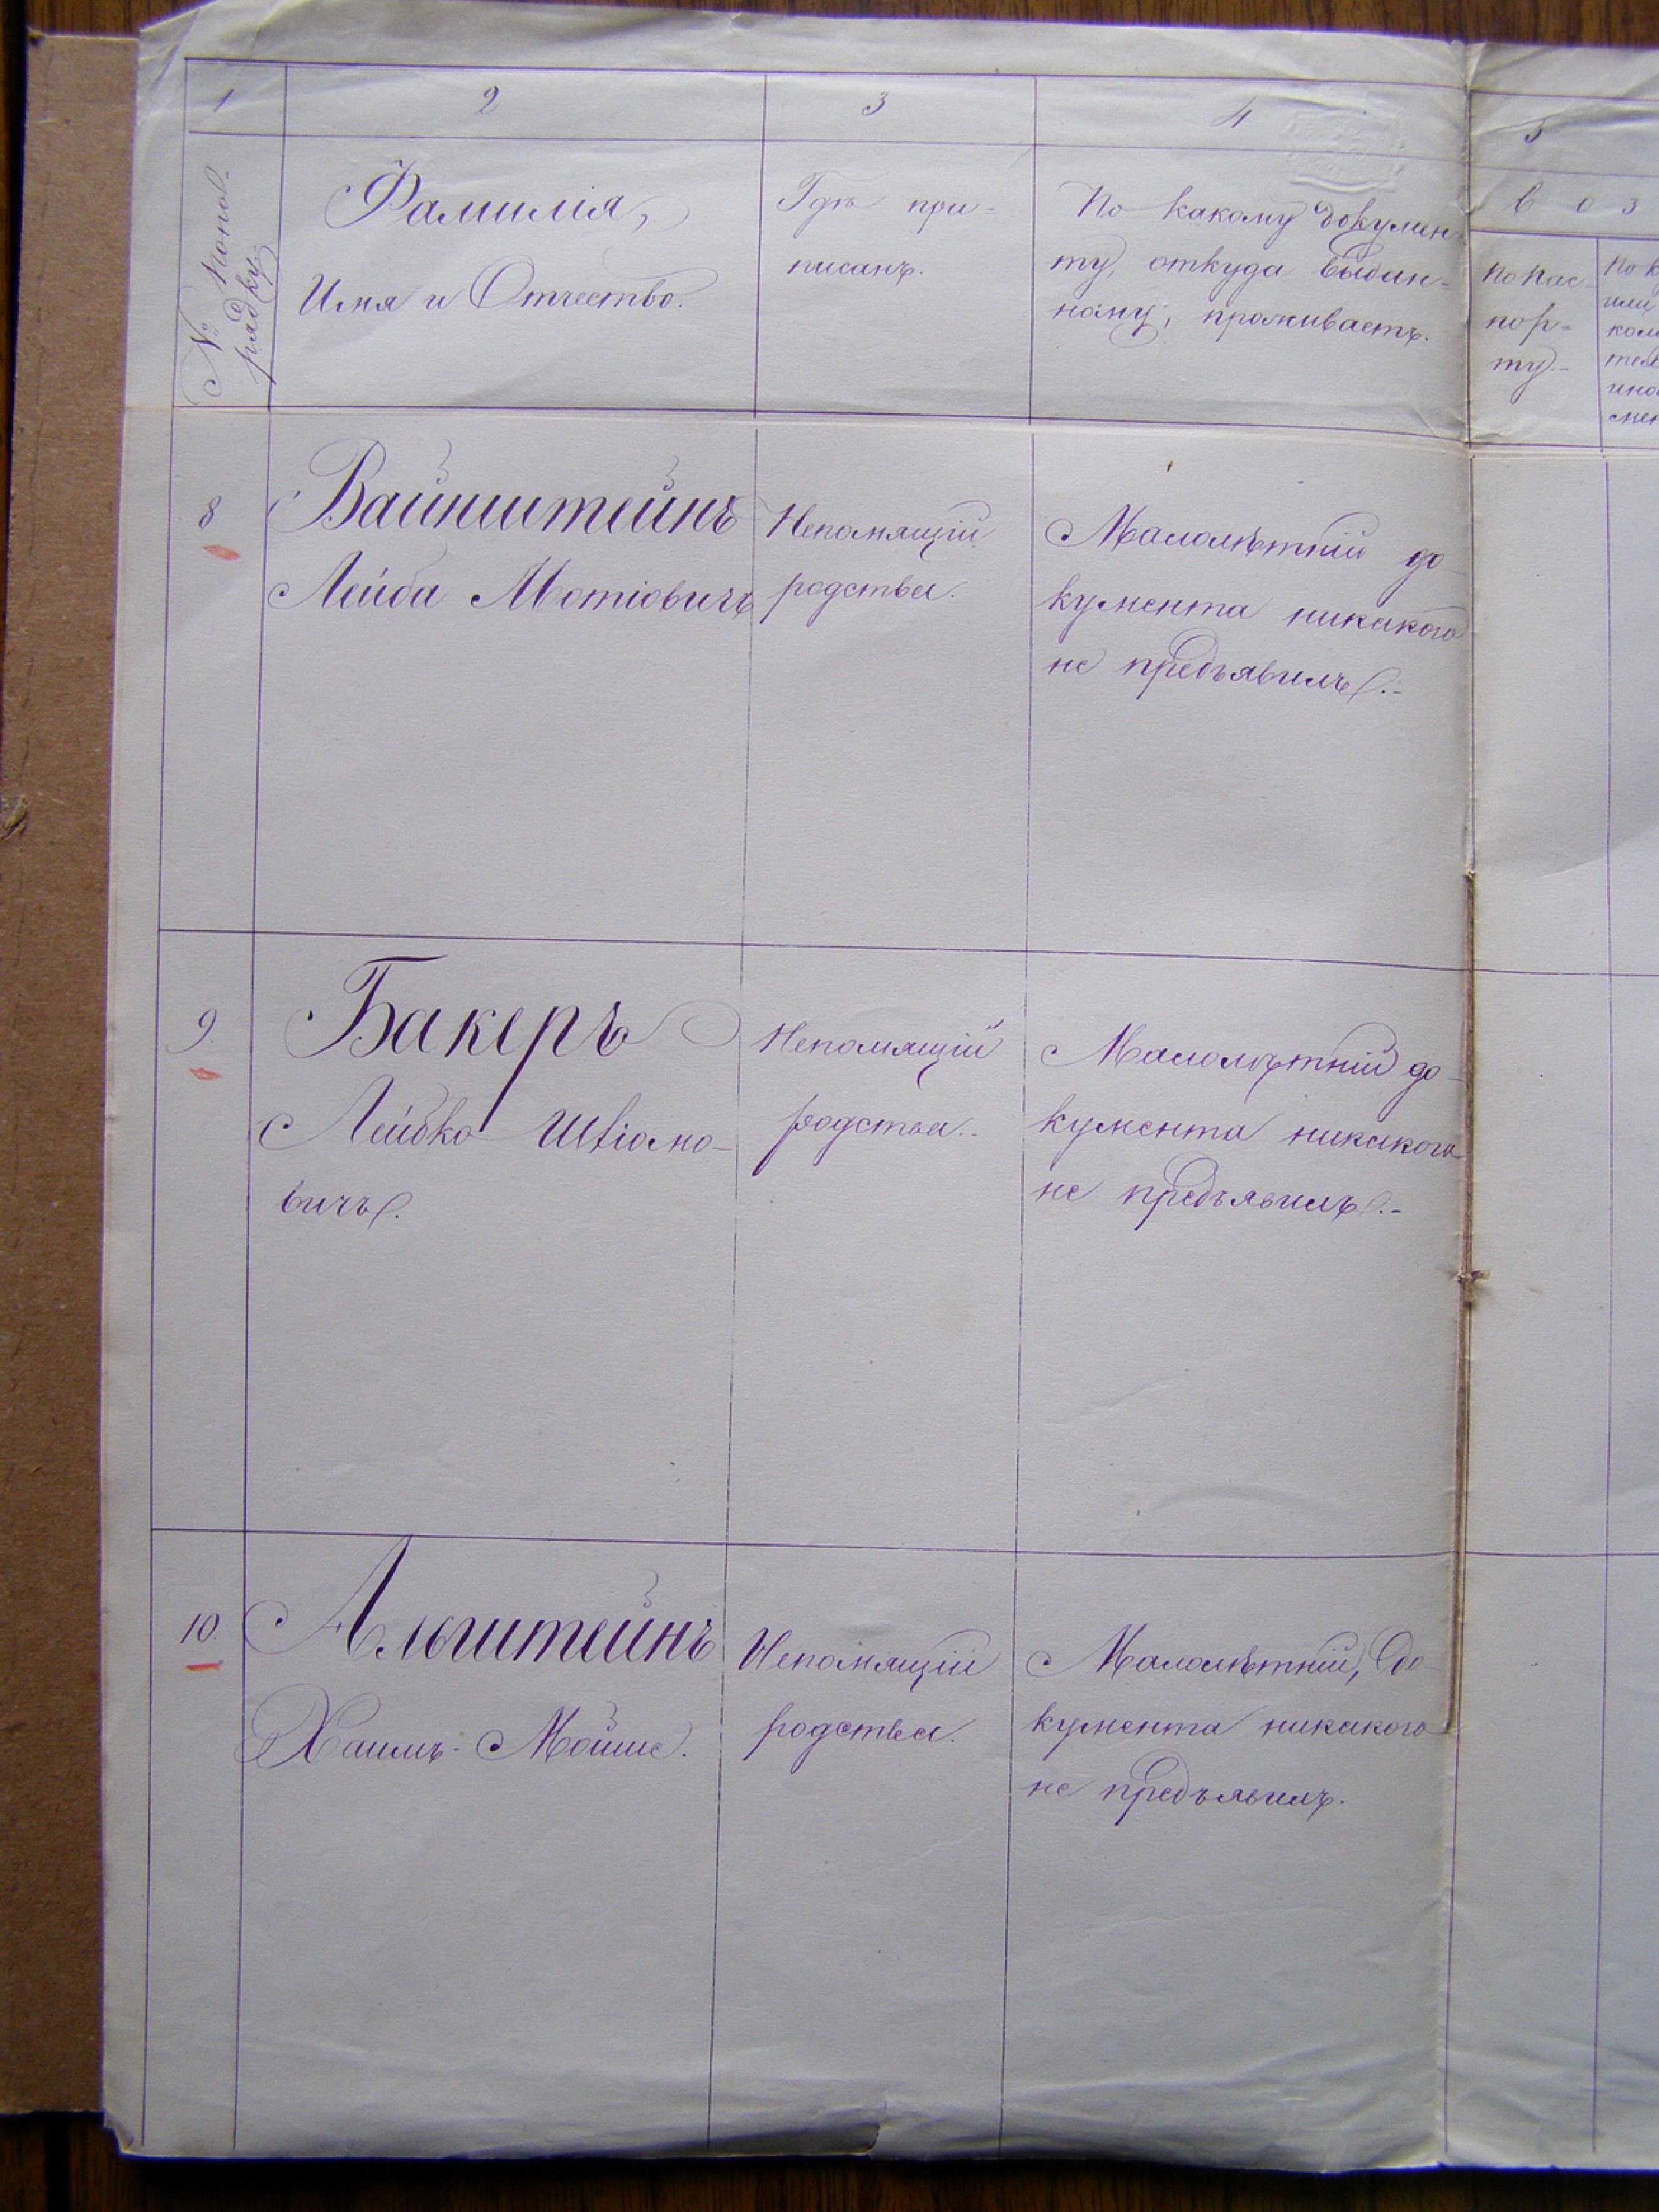 1
2
3
4
5
№ попо-
рядку.
Фамилія,
Имя и Отчество.
Гдѣ при-
писанъ.
По какому докумен-
ту, откуда выдан-
ному, проживаетъ.
воз
По пас-
пор-
ту.
8
Вайнштейнъ
Лейба Мотіовичъ
Непомнящій
родства.
Малолѣтній до-
кумента никакого
не предъявилъ.-
9.
Бакеръ
Лейбко
вичъ.
Непомящій
родства.
Малолѣтній до-
кумента никакого
не предъявилъ.-
10.
Альштейнъ
Хаимъ-Мойше.
Непомнящій
родства.
Малолѣтній, до-
кумента никакого
не предъявилъ.